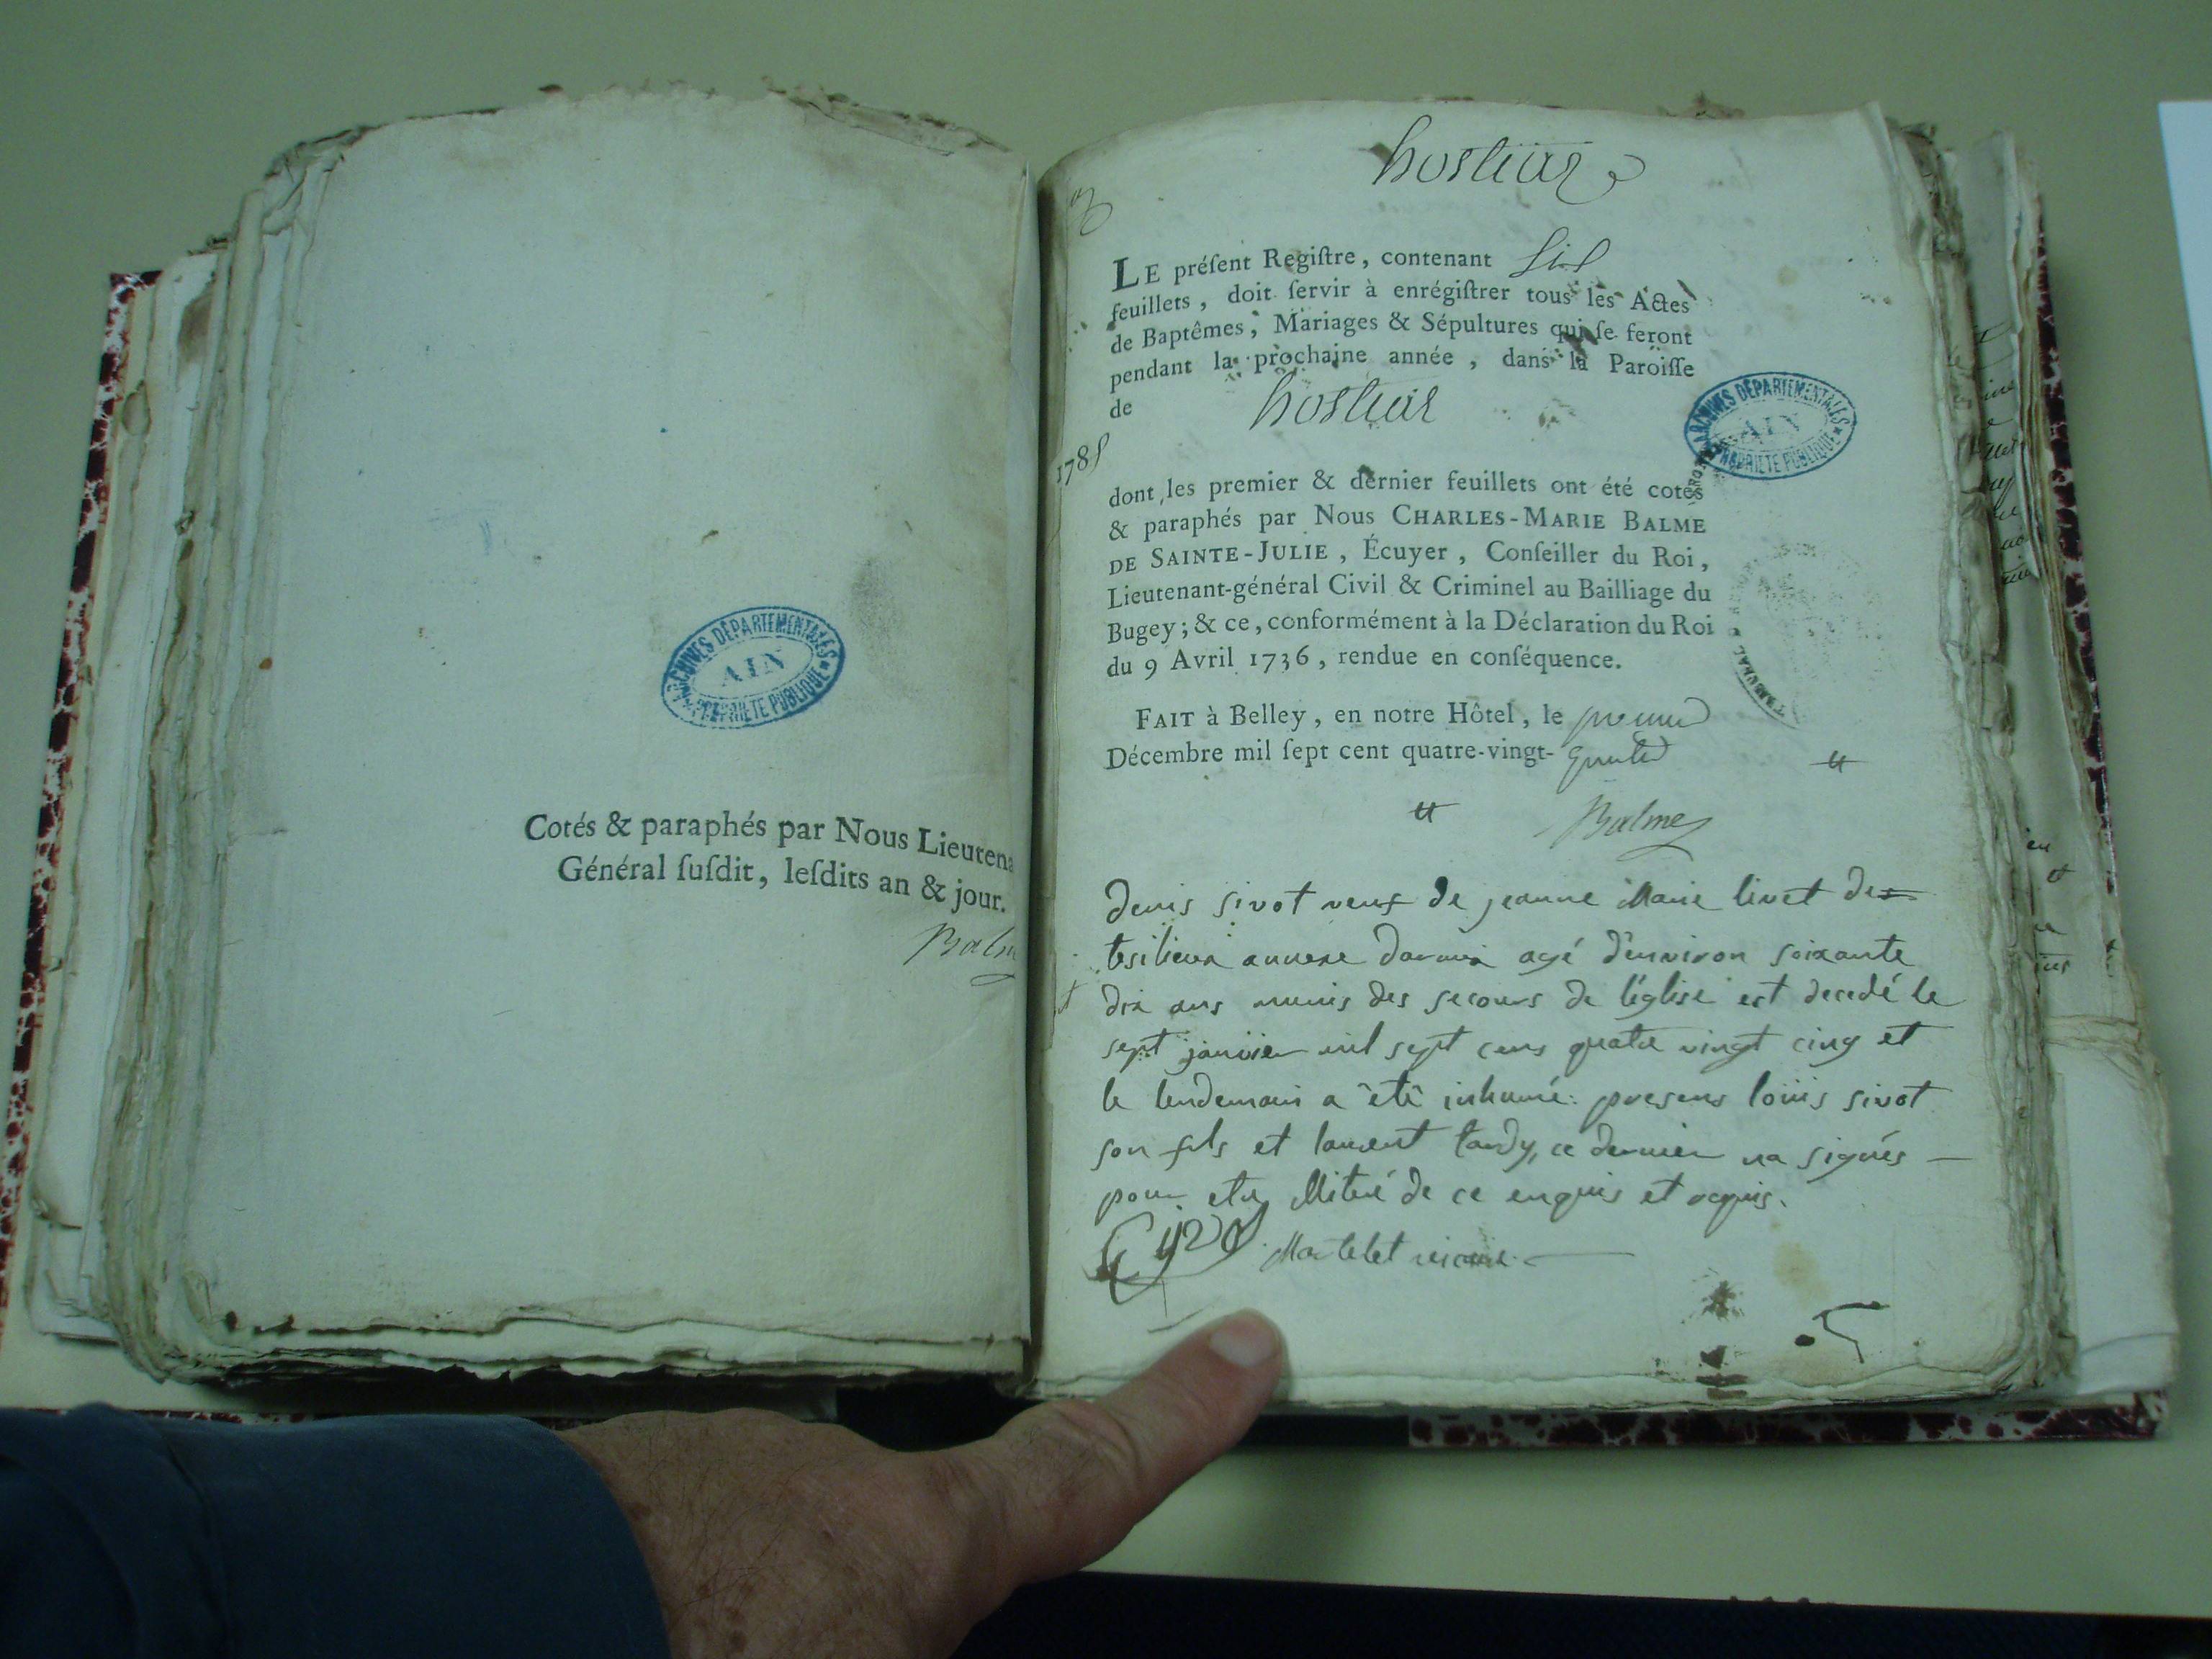 ARCHIVES DÉPARTEMENTALES
AIN
PROPRIÉTÉ PUBLIQUE
Cotés & paraphés par Nous Lieutena
Général ſuſdit, leſdits an & jour.
Balm
LE préſent Regiſtre, contenant
feuillets, doit ſervir à enrégiſtrer tous les Actes
de Baptêmes, Mariages & Sépultures qui ſe feront
pendant la prochaine année, dans la Paroiſſe
de
1785
ARCHIVES DÉPARTEMENTALES
AIN
PROPRIÉTÉ PUBLIQUE
dont les premier & dernier feuillets ont été cotés
& paraphés par Nous CHARLES-MARIE BALME
DE SAINTE-JULIE, Écuyer, Conſeiller du Roi,
Lieutenant-général Civil & Criminel au Bailliage du
Bugey; & ce, conformément à la Déclaration du Roi
du 9 Avril 1736, rendue en conſéquence.
FAIT à Belley, en notre Hôtel, le premier
Décembre mil ſept cent quatre-vingt-quatre
Balme
Denis sivot veuf de jeanne Marie livet de
annexe agé d'environ soixante
dix ans munis des secours de l'église est decedé le
sept janvier mil sept cens quatre vingt cinq et
le lendemain a été inhumé: presens loüis sivot
son fils et laurent tardy, ce dernier na signés
pour etre illiteré de ce enquis et requis.
Martelet vicaire